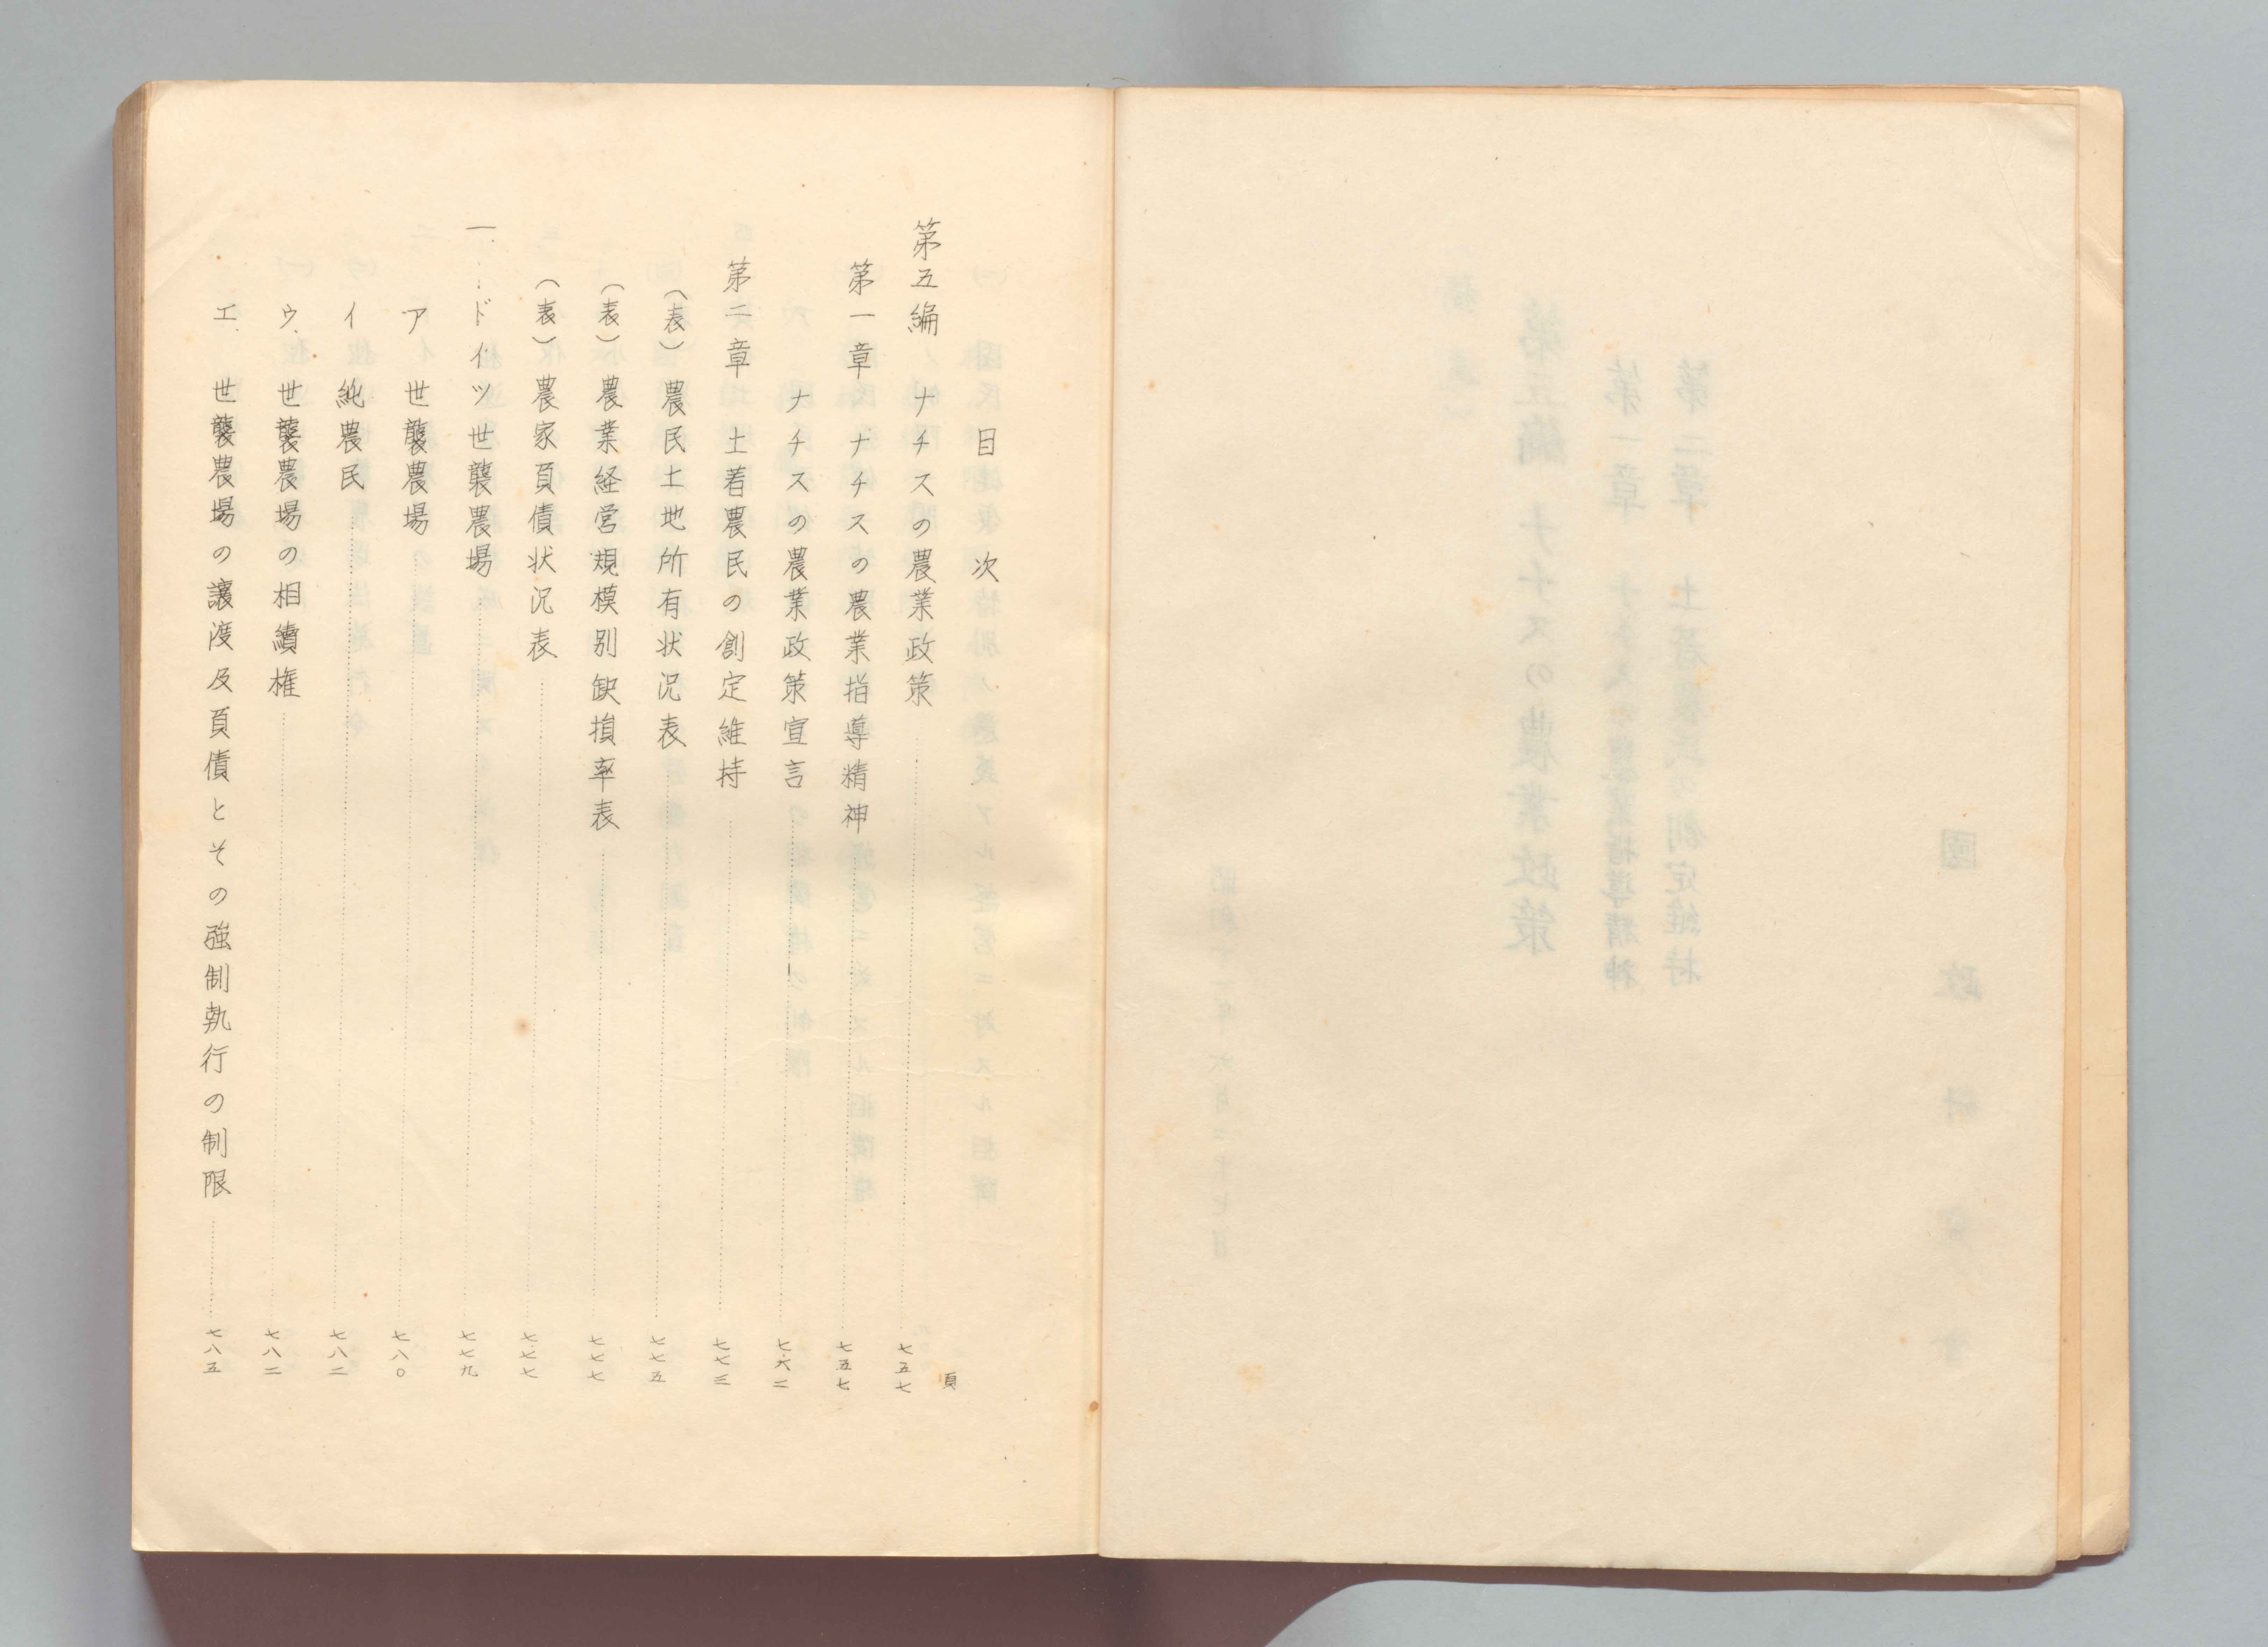 目次
頁
第五編 ナチスの農業政策 七五七
第一章 ナチスの農業指導精神 七五七
ナチスの農業政策宣言 七六二
第二章 土着農民の創定維持 七七三
(表)農民土地所有状況表 七七五
(表)農業経営規模別缺損率表 七七七
(表)農家負債状況表 七七七
一、ドイツ世襲農場 七七九
ア 世襲農場 七八〇
イ 純農民 七八二
ウ、世襲農場の相續権 七八二
エ、世襲農場の譲渡及負債とその強制執行の制限 七八五